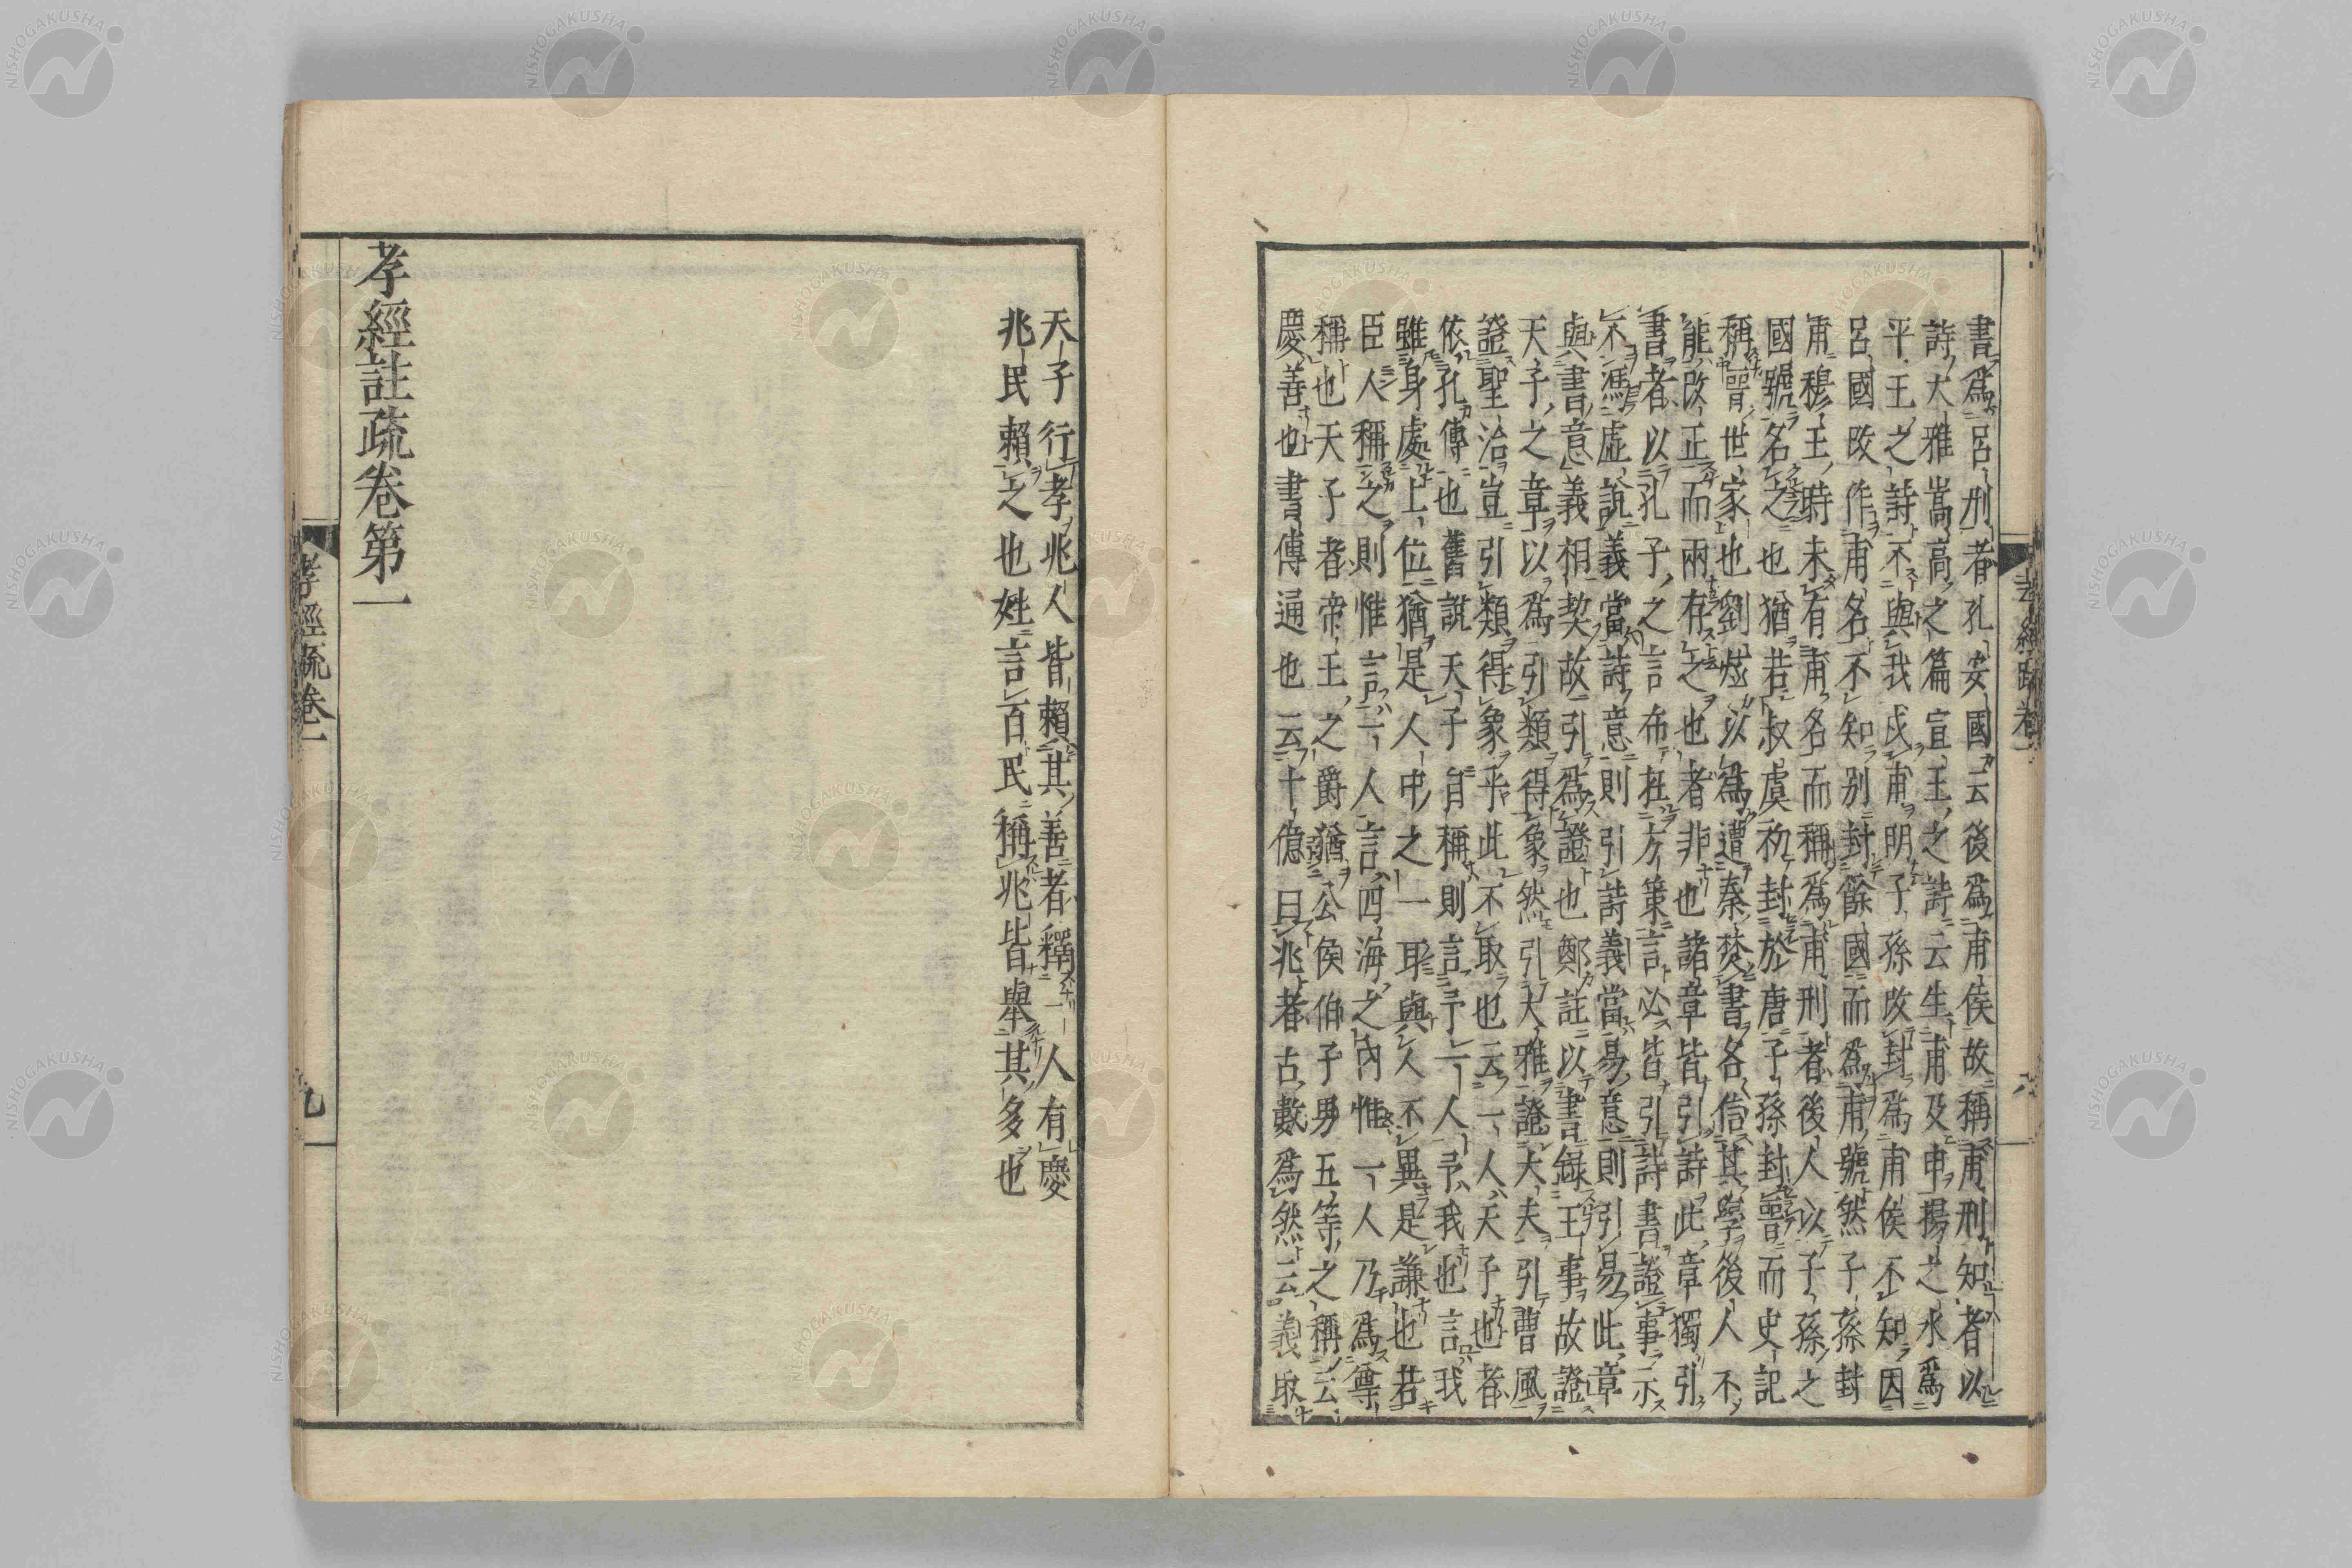 書爲呂刑者孔安國云後爲甫侯故稱甫刑知者以
詩大雅嵩高之篇宣王之詩云生甫及申揚之水爲
平王之詩不與我戍甫明子孫改封爲甫侯不知因
呂國改作甫名不知別封餘國而爲甫號然子孫封
甫穆王時未有甫名而稱爲甫刑者後人以子孫之
國號名之也猶若叔虞初封於唐子孫封晉而史記
稱晉世家也劉炫以爲遭秦焚書各信其學後人不
能改正而兩存之也者非也諸章皆引詩此章獨引
書者以孔子之言布在方策言必皆引詩書證事示
不馮虛說義當詩意則引詩義當易意則引易此章
與書意義相契故引爲證也鄭註以書錄王事故證
天子之章以爲引類得象然引大雅證大夫引曹風
證聖治豈引類得象乎此不取也云一人天子也者
依孔傳也舊說天子自稱則言予一人予我也言我
雖身處上位猶是人中之一耳與人不異是謙也若
臣人稱之則惟言一人言四海之內惟一人乃爲尊
稱也天子者帝王之爵猶公侯伯子男五等之稱云
慶善也書傳通也云十億曰兆者古數爲然云義取
孝經疏卷一
天子行孝兆人皆賴其善者釋一人有慶
兆民賴之也姓言百民稱兆皆舉其多也
孝經註疏卷第一
孝經疏卷一
九
NISHOGAKUSHA